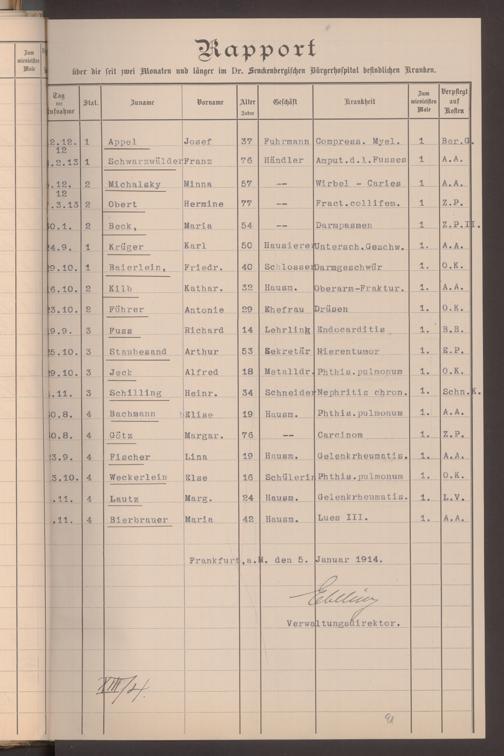 Zum
wievielten
Male
Rapport
über die seit zwei Monaten und länger im Dr. Senckenbergischen Bürgerhospital befindlichen Kranken.
Tag der Aufnahme Stat. Zuname Vorname Alter Jahre Geschäft Krankheit Zum wievielten Male Verpflegt auf Kosten
2.12. 12 1 Appel Josef 37 Fuhrmann Compress. Myel. 1 Ber.G.
.2.13 1 Schwarzwälder Franz 76 Händler Amput.d.l.Fusses 1 A.A.
.12. 12 2 Michalsky Minna 57 -- Wirbel - Caries 1 A.A.
.3.13 2 Obert Hermine 77 -- Fract.collifem. 1 Z.P.
0.1. 2 Beck, Maria 54 -- Darmpasmen 1 Z.P.II.
24.9. 1 Krüger Karl 50 Hausierer Untersch.Geschw. 1. A.A.
29.10. 1 Baierlein, Friedr. 40 Schlosser Darmgeschwür 1. O.K.
6.10. 2 Kilb Kathar. 32 Hausm. Oberarm-Fraktur. 1. A.A.
23.10. 2 Führer Antonie 29 Ehefrau Drüsen 1. O.K.
9.9. 3 Fuss Richard 14 Lehrling Endocarditis 1. B.B.
25.10. 3 Staubesand Arthur 53 Sekretär Nierentumor 1. E.P.
29.10. 3 Jeck Alfred 18 Metalldr. Phthis.pulmonum 1. O.K.
.11. 3 Schilling Heinr. 34 Schneider Nephritis chron. 1. Schn.K.
0.8. 4 Bachmann Elise 19 Hausm. Phthis.pulmonum 1. A.A.
0.8. 4 Götz Margar. 76 -- Carcinom 1. Z.P.
23.9. 4 Fischer Lina 19 Hausm. Gelenkrheumatis. 1. A.A.
3.10. 4 Weckerlein Else 16 Schülerin Phthis.pulmonum 1. O.K.
.11. 4 Lautz Marg. 24 Hausm. Gelenkrheumatis. 1. L.V.
.11. 4 Bierbrauer Maria 42 Hausm. Lues III. 1. A.A.
Frankfurt,a.M. den 5. Januar 1914.
Ebeling
Verwaltungsdirektor.
XIII/4.